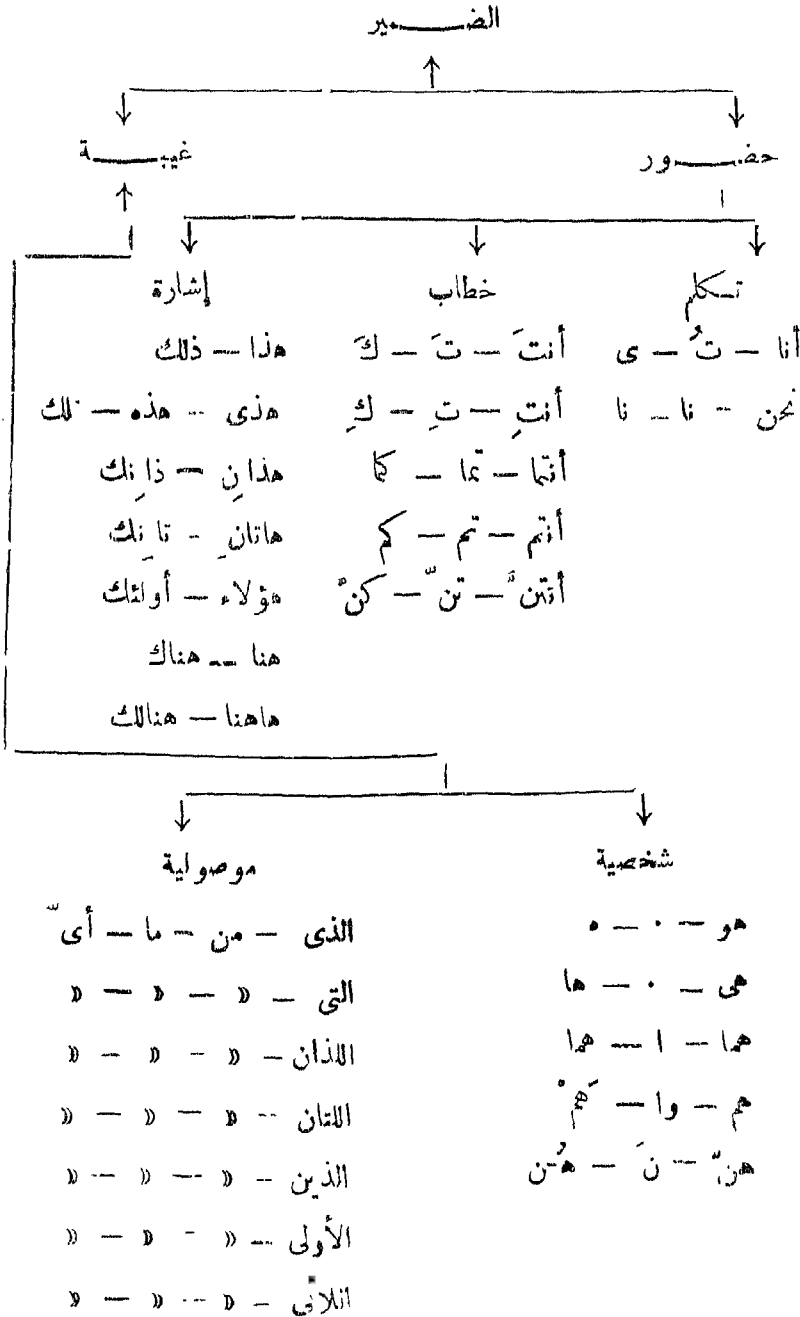 الضمير
حضور
غيبة
تكلم
أنا – تُ – ى
نحن – نا – نا
خطاب
أنتَ – تَ – كَ
أنتِ – تِ – كِ
أنتما – تما – كما
أنتم – تم – كم
أنتنّ – تنّ – كنّ
إشارة
هذا – ذلك
هذى – هذه – تلك
هذانِ – ذانِك
هاتانِ – تانِك
هؤلاء – أولئك
هنا – هناك
هاهنا – هنالك
شخصية
هو – ٠ – ه
هى – ٠ – ها
هما – ا – هما
هم – وا – هم
هنّ – نَ – هُن
موصولية
الذى – من – ما – أىّ
التى – » – » – »
اللذان – » – » – »
اللتان – » – » – »
الذين – » – » – »
الأولى – » – » – »
اللاتى – » – » – »